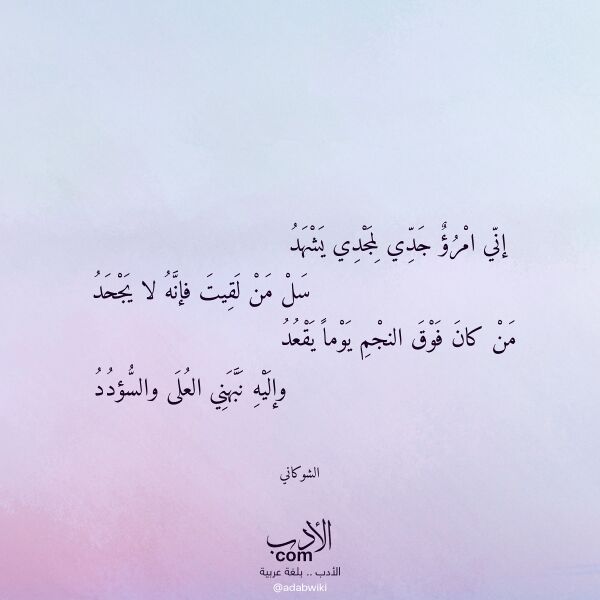 إنّي امْرُؤٌ جَدِّي لِمَجْدِي يَشْهَدُ
سَلْ مَنْ لَقِيتَ فإنَّهُ لا يَجْحَدُ
مَنْ كانَ فَوْقَ النجْمِ يَوْماً يَقْعُدُ
وإلَيْهِ نَبَّهَنِي العُلَى والسُّؤدُدُ
الشوكاني
الأدب
.com
الأدب .. بلغة عربية
@adabwiki